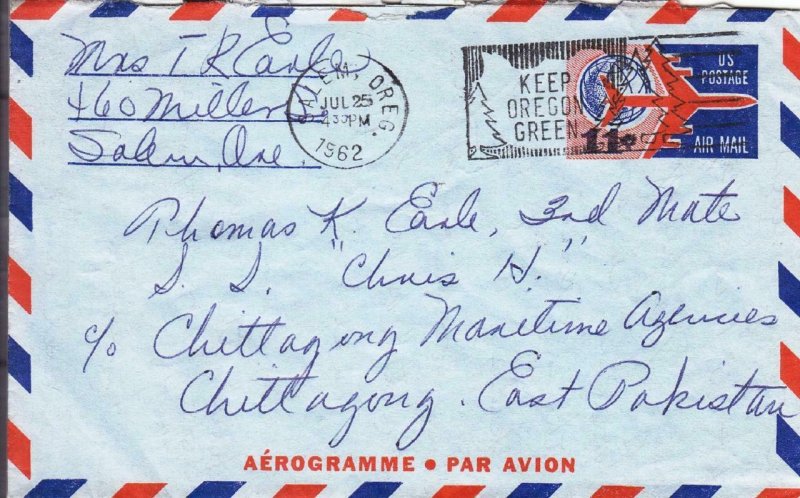 Mrs T R Earle
460 Miller
Salem, Ore.
SALEM, OREG.
JUL 25
4 30 PM
1962
KEEP
OREGON
GREEN
US
POSTAGE
11¢
AIR MAIL
Thomas K. Earle, 3rd Mate
S. S. "Chris H."
c/o Chittagong Maritime Agencies
Chittagong. East Pakistan
AÉROGRAMME • PAR AVION